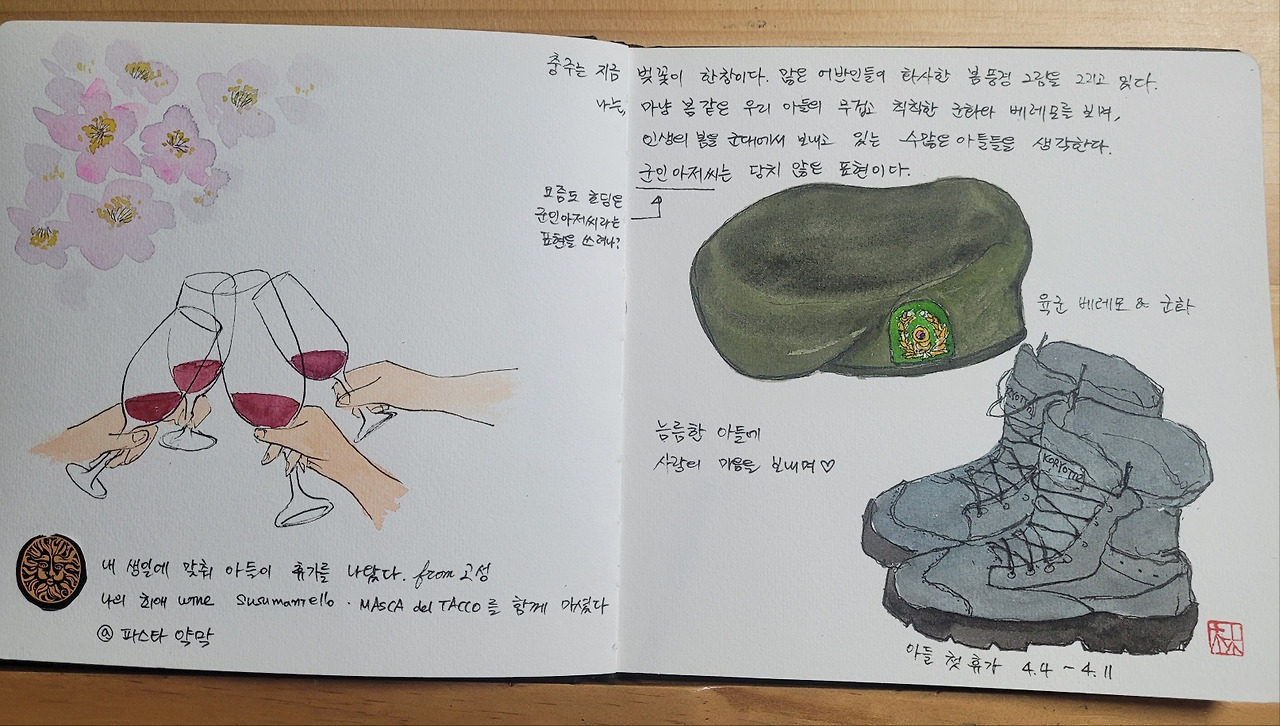 충주는 지금 벚꽃이 한창이다. 많은 어반인들이 화사한 봄풍경 그림을 그리고 있다.
나는, 마냥 봄 같은 우리 아들의 무겁고 칙칙한 군화와 베레모를 보며,
인생의 봄을 군대에서 보내고 있는 수많은 아들들을 생각한다.
군인아저씨는 당치 않은 표현이다.
요즘도 호칭은
군인아저씨라는
표현을 쓰려나?
육군 베레모 & 군화
늠름한 아들에
사랑의 마음을 보내며♡
KORYOTTO
KORYOTTO
내 생일에 맞춰 아들이 휴가를 나왔다. from 고성
나의 최애 wine Susumaniello · MASCA del TACCO를 함께 마셨다
@ 파스타 약막
아들 첫 휴가 4.4 ~ 4.11